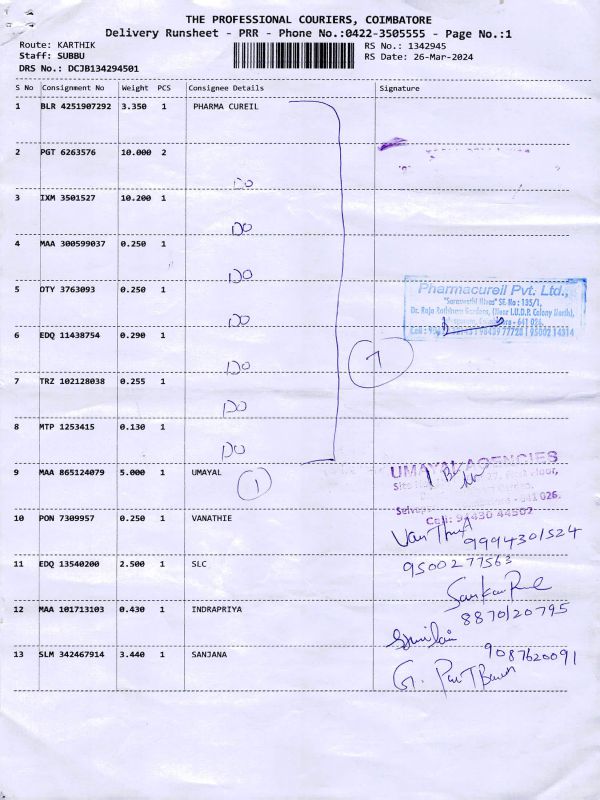 THE PROFESSIONAL COURIERS, COIMBATORE
Delivery Runsheet - PRR - Phone No.:0422-3505555 - Page No.:1
Route: KARTHIK
Staff: SUBBU
DRS No.: DCJB134294501
RS No.: 1342945
RS Date: 26-Mar-2024
S No Consignment No Weight PCS Consignee Details Signature
1 BLR 4251907292 3.350 1 PHARMA CUREIL
2 PGT 6263576 10.000 2
DO
3 IXM 3501527 10.200 1
DO
4 MAA 300599037 0.250 1
DO
5 DTY 3763093 0.250 1
DO
Pharmacureil Pvt. Ltd.,
"Saraswathi Illvas" SF. No : 135/1,
Dr. Raja Rathinam Gardens, (Near T.U.D.P. Colony North),
- 641 026.
6 EDQ 11438754 0.290 1
DO
7
7 TRZ 102128038 0.255 1
DO
8 MTP 1253415 0.130 1
DO
9 MAA 865124079 5.000 1 UMAYAL
1
UMAYAL AGENCIES
- 641 026.
Cell: 94430 44502
10 PON 7309957 0.250 1 VANATHIE
9994301524
11 EDQ 13540200 2.500 1 SLC
9500277563
12 MAA 101713103 0.430 1 INDRAPRIYA
8870120795
13 SLM 342467914 3.440 1 SANJANA
9087620091